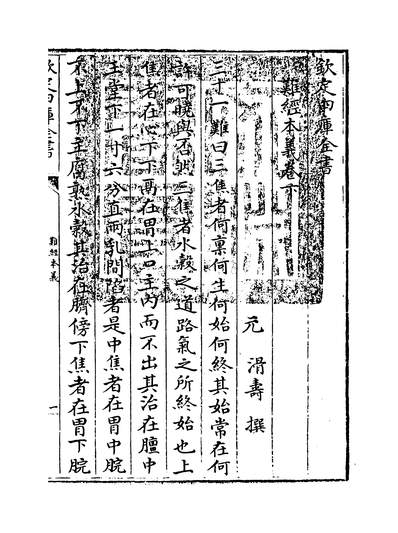 欽定四庫全書
難經本義卷下
元 滑壽 撰
三十一難曰三焦者何稟何生何始何終其始常在何
許可曉與否然三焦者水穀之道路氣之所終始也上
焦者在心下下鬲在胃上口主內而不出其治在膻中
玉堂下一寸六分直兩乳間陷者是中焦者在胃中脘
不上不下主腐熟水穀其治在臍傍下焦者在胃下脘
欽定四庫全書
難經本義
一